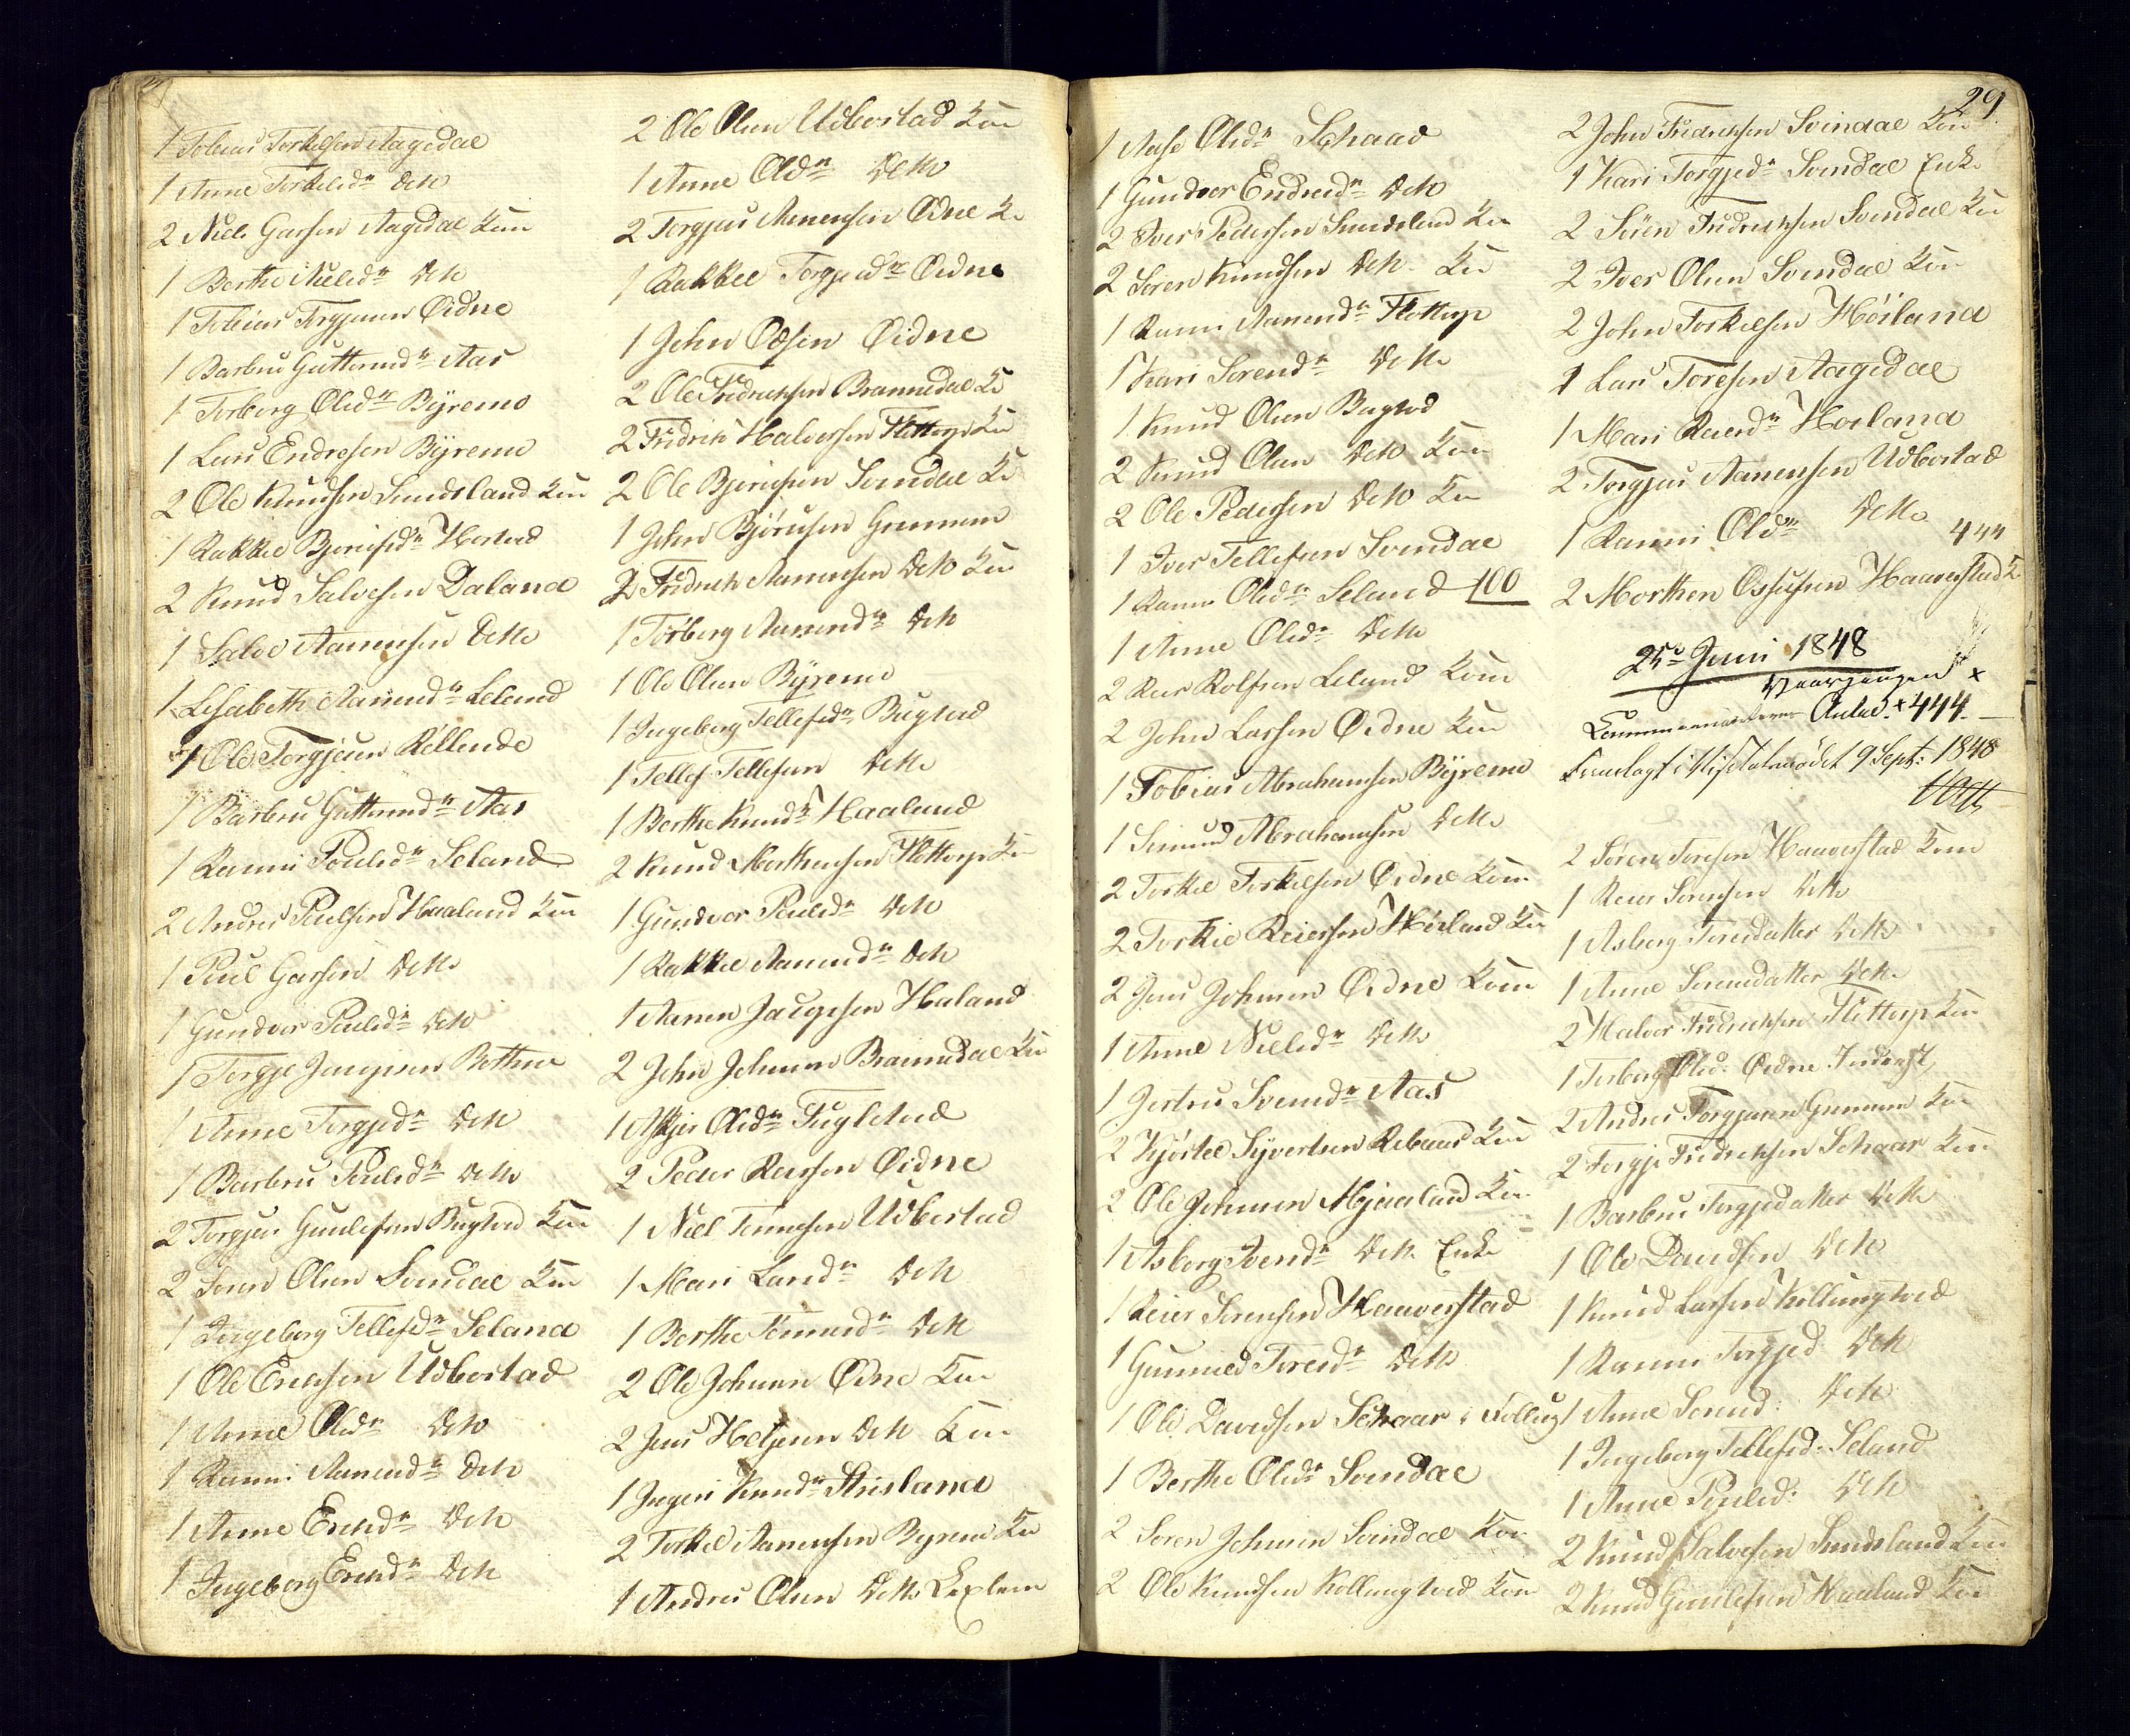 1 Tobias Torkelsen Aagedal
1 Anne Torkelsdr Dto
2 Niels Garsen Aagedal Kone
1 Berthe Nielsdr Dto
1 Tobias Torgjusen Øidne
1 Barbru Guttormsdr Aas
1 Torborg Olsdr Byremo
1 Lars Endresen Byremo
2 Ole Knudsen Sundsland Kone
1 Rakkel Bjørnsdr Horstad
2 Knud Salvesen Daland
1 Salve Aanensen Ditto
1 Lisabeth Aanensdr Leland
1 Ole Torgjusen Røllend
1 Barbru Guttormsdr Aas
1 Ranni Poulsdr Seland
2 Andres Poulsen Haaland Kone
1 Poul Garsen Ditto
1 Gundvor Poulsdr Dto
1 Torgje Jacopsen Bothne
1 Anne Torgjesdr Dto
1 Barbru Poulsdr Ditto
2 Torgjus Gunlefsen Bugtvd Kone
2 Søren Olsen Svindal Kone
1 Ingeborg Tellefsdr Seland
1 Ole Ericksen Udbostad
1 Anne Olsdr Dto
1 Ranni Aanensdr Dto
1 Anne Ericksdr Dto
1 Ingeborg Ericksdr Dto
2 Ole Olsen Udbostad Kone
1 Anne Olsdr Ditto
2 Torgjus Aanensen Øidne K
1 Rakkel Torgjusdr Øidne
1 John Olsen Øidne
2 Ole Fredrichsen Brannsdal K
2 Fredrich Halvorsen Flottorp Kone
2 Ole Bjørnsen Svindal K
1 John Bjørnsen
2 Fredrich Aanensen Dto Kone
1 Torborg Aanensdr Dto
1 Ole Olsen Byremo
1 Ingeborg Tellefsdr Bugtvd
1 Tellef Tellefsen Ditto
1 Berthe Knudsdr Haaland
2 Knud Morthensen Flottorp Kone
1 Gundvor Poulsdr Dto
1 Rakkel Aanensdr Dto
1 Aanen Jacopsen Haland
2 John Johnsen Brannsdal Kone
1 Askjer Olsdr Fuglstvd
2 Peder Reiersen Øidne
1 Niel Tønnesen Udbostad
1 Mari Larsdr Dto
1 Berthe Tønnesdr Dto
2 Ole Johnsen Øidne Kone
2 Jens Heljesen Dto Kone
1 Ingeri Knudsdr Strisland
2 Torkel Aanensen Byremo Kone
1 Andres Olsen Ditto
29
1 Aase Olsdr Schaar
1 Gundvor Endresdr Dto
2 Iver Pedersen Sundsland Kone
2 Søren Knudsen Dto Kone
1 Ranni Aanensdr Flottorp
1 Kari Sørensdr Ditto
1 Knud Olsen Bugtvd
2 Knud Olsen Dto Kone
2 Ole Pedersen Dto Kone
1 Iver Tellefsen Svindal
1 Ranni Olsdr Seland 100
1 Anne Olsdr Ditto
2 Reier Rolfsen Leland Kone
2 John Larsen Øidne Kone
1 Tobias Abrahamsen Byremo
1 Simund Abrahamsen Ditto
2 Torkel Torkelsen Øidne Kone
2 Torkel Reiersen Høiland Kone
2 Jens Johnsen Øidne Kone
1 Anne Nielsdr Ditto
1 Jertru Svensdr Aas
2 Kjøstel Syvertsen Rebaas Kone
2 Ole Johnsen Mjaaland Kone
1 Asborg Svensdr Ditto Enke
1 Reier Sørensen Haaverstad
1 Gunnild Toresdr Ditto
1 Ole Davidsen Schaar i Følling
1 Berthe Olsdr Svindal
2 Søren Johnsen Svindal Kone
2 Ole Knudsen Kollungtvd Kone
2 John Fredrichsen Svindal Kone
1 Kari Torgjesdr Svindal Enke
2 Søren Fredrichsen Svindal Kone
2 Iver Olsen Svindal Kone
2 John Torkelsen Høiland
1 Lars Toresen Aagedal
1 Mari Reiersdr Hoiland
2 Torgjus Aanensen Udbostad
1 Ranni Olsdr Ditto 444
2 Morthen Ossufsen Haaverstad K
25de Juni 1848
Vaargangen
Communicanternes Antal 444
Fremlagt i Visitatsmødet 9 Sept: 1848
2 Søren Toresen Haaverstad Kone
1 Reier Sørensen Ditto
1 Asborg Toresdatter Ditto
1 Anne Sørensdatter Ditto
2 Halvor Fredrichsen Flottorp Kone
1 Torborg Olsd: Øidne Inderst
2 Andres Torgjusen Kone
2 Torgje Fredrichsen Schaar Kone
1 Barbru Torgjesdatter Ditto
1 Ole Davidsen Dto
1 Knud Larsen Kollungtvd
1 Ranni Torgjesd: Dto
1 Anne Sørensd: Dto
1 Ingeborg Tellefsd: Seland
1 Anne Poulsd: Dto
2 Knud Salvesen Sundsland Kone
2 Knud Gunlefsen Haaland Kone